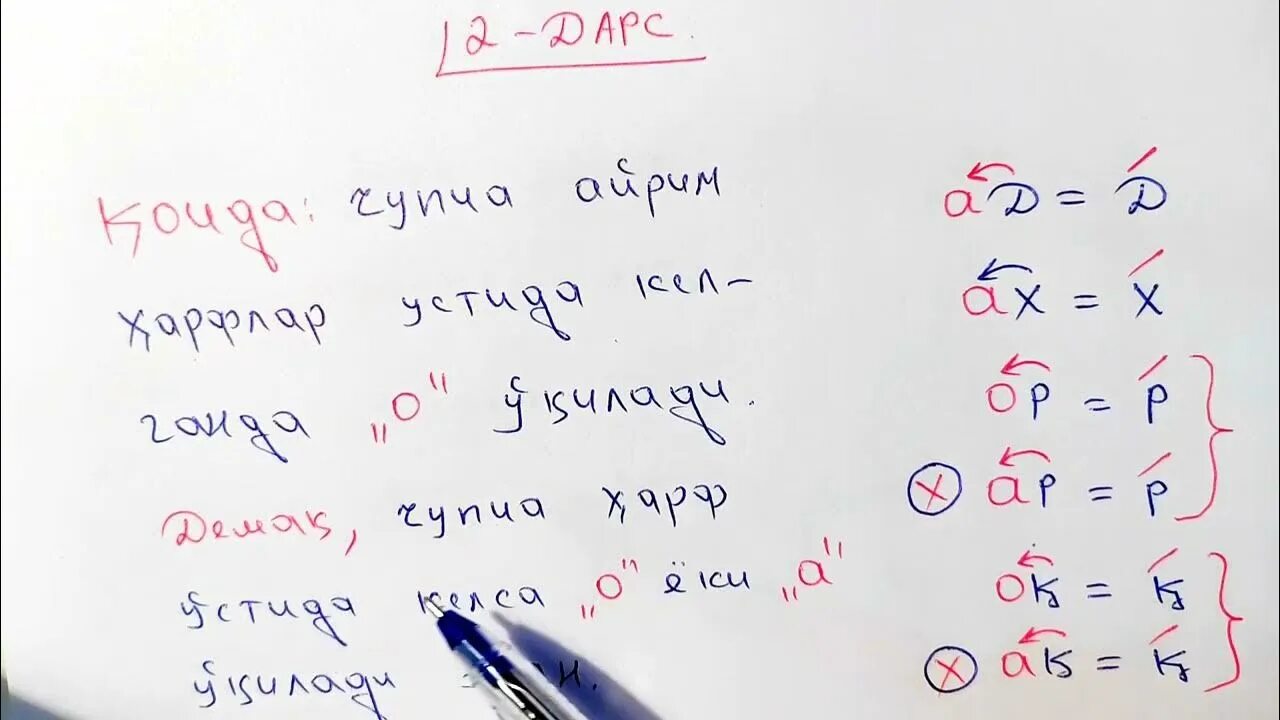 2-ДАРС.
Қоида: чупча айрим
ҳарфлар устида кел-
ганда „о“ ўқилади.
Демак, чупча ҳарф
ўстида келса „о“ ёки „а“
ўқилади
аД = Д́
ах = х́
ор = р́
х ар = р́
оқ = қ́
х ақ = қ́